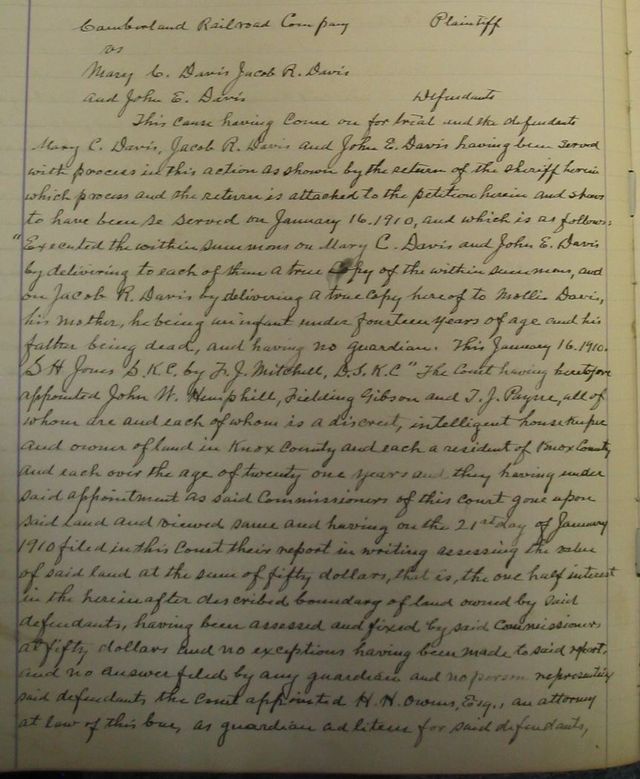 Cumberland Railroad Company Plaintiff
vs
Mary C. Davis Jacob R. Davis
and John E. Davis Defendants
This cause having come on for trial and the defendants
Mary C. Davis, Jacob R. Davis and John E. Davis having been served
with process in this action as shown by the return of the sheriff herein
which process and the return is attached to the petition herein and shows
to have been so served on January 16. 1910, and which is as follows:
"Executed the within summons on Mary C. Davis and John E. Davis
by delivering to each of them a true copy of the within summons, and
on Jacob R. Davis by delivering a true copy hereof to Mollie Davis,
his mother, he being an infant under fourteen years of age and his
father being dead, and having no guardian. This January 16. 1910.
G H Jones S.K.C. by F. J. Mitchell, D.S.K.C" The Court having heretofore
appointed John W. Hemphill, Fielding Gibson and T. J. Payne, all of
whom are and each of whom is a discreet, intelligent housekeeper
and owner of land in Knox County and each a resident of Knox County
and each over the age of twenty one years and they having under
said appointment as said Commissioners of this court gone upon
said land and viewed same and having on the 21st day of January
1910 filed in this Court their report in writing assessing the value
of said land at the sum of fifty dollars, that is, the one half interest
in the herein after described boundary of land owned by said
defendants, having been assessed and fixed by said Commissioners
at fifty dollars and no exceptions having been made to said report,
and no answer filed by any guardian and no person representing
said defendants the Court appointed H. H. Owens, Esq., an attorney
at law of this bar, as guardian ad litem for said defendants,